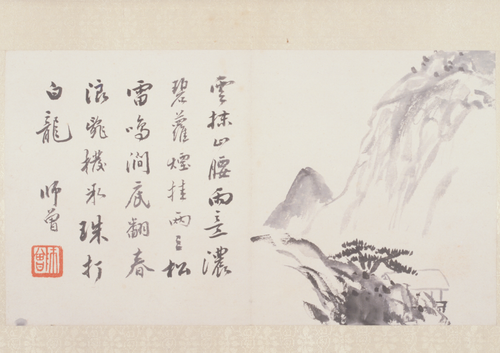 雲抹山腰雨意濃
碧蘿煙挂兩三松
雷鳴澗底翻春
浪亂撥氷珠打
白龍 師曾